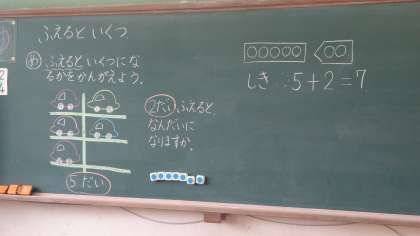 ふえるといくつ
め ふえるといくつにな
るかをかんがえよう。
5だい
2だいふえると
なんだいに
なりますか。
しき:5+2=7